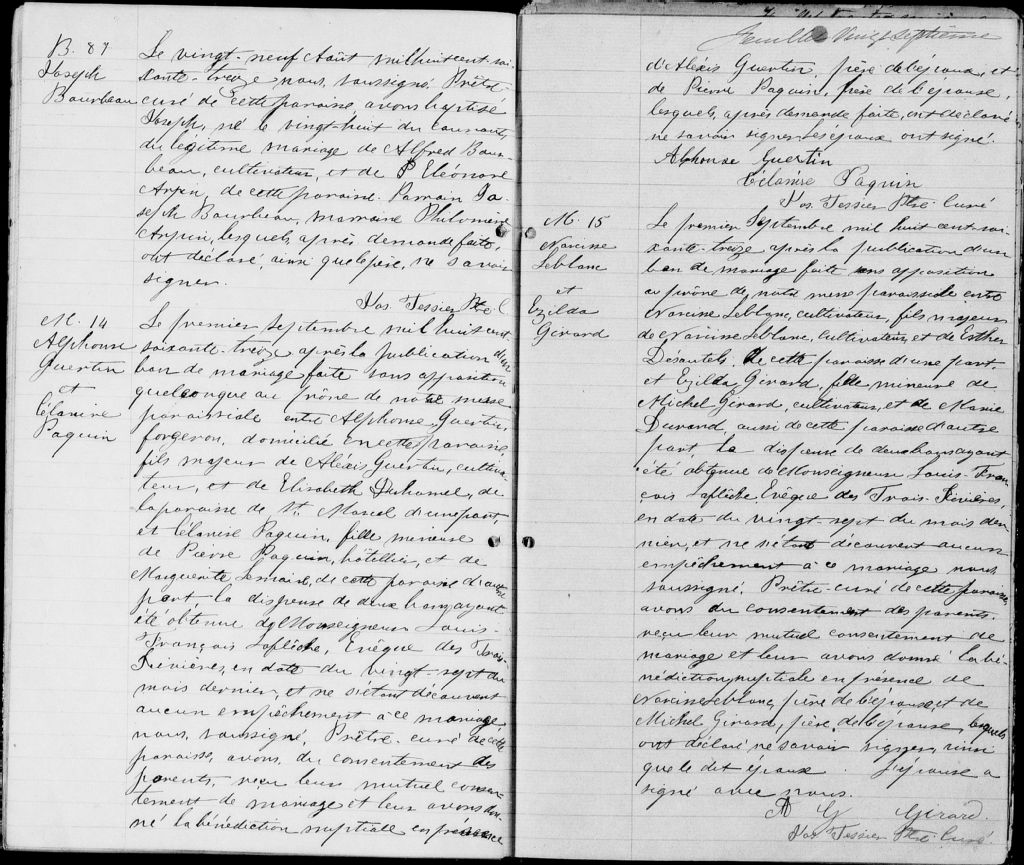 B. 87
Joseph
Bourbeau
Le vingt-neuf Août mil huit cent soi-
xante-treize nous, soussigné, Prêtre
curé de cette paroisse, avons baptisé
Joseph, né le vingt-huit du courant
du légitime mariage de Alfred Bour-
beau, cultivateur, et de Eléonore
Arpin, de cette paroisse. Parrain Jo-
seph Bourbeau, marraine Philomène
Arpin, lesquels, après demande faite,
ont déclaré, ainsi que le père, ne savoir
signer.
Jos. Tessier Ptre C.
M. 14
Alphonse
Guertin
et
Célanire
Paquin
Le premier Septembre mil huit cent
soixante-treize après la publication d'un
ban de mariage faite sans opposition
quelconque au prône de notre messe
paroissiale entre Alphonse Guertin,
forgeron, domicilié en cette paroisse,
fils majeur de Aléxis Guertin, cultiva-
teur, et de Elisabeth Duhamel, de
la paroisse de St. Marcel d'une part,
et Célanise Paquin, fille mineure
de Pierre Paquin, hôtellier, et de
Marguerite Lemaire, de cette paroisse d'autre
part, la dispense de deux bans ayant
été obtenue de Monseigneur Louis-
François Laflêche, Evêque des Trois-
Rivières, en date du vingt-sept du
mois dernier, et ne s'étant découvert
aucun empêchement à ce mariage,
nous, soussigné, Prêtre-curé de cette
paroisse, avons, du consentement des
parents, reçu leur mutuel consen-
tement de mariage et leur avons don-
né la bénédiction nuptiale en présence
Feuillet vingt septième
d'Aléxis Guertin, père de l'époux, et
de Pierre Paquin, père de l'épouse,
lesquels, après demande faite, ont déclaré
ne savoir signer. Les époux ont signé.
Alphonse Guertin
Célanise Paquin
Jos. Tessier Ptre Curé
M. 15
Narcisse
Leblanc
et
Exilda
Girard
Le premier Septembre mil huit cent soi-
xante-treize après la publication d'un
ban de mariage faite sans opposition
au prône de notre messe paroissiale entre
Narcisse Leblanc, cultivateur, fils majeur
de Narcisse Leblanc, cultivateur, et de Esther
Desautels, de cette paroisse d'une part,
et Exilda Girard, fille mineure de
Michel Girard, cultivateur, et de Marie
Durand, aussi de cette paroisse d'autre
part, la dispense de deux bans ayant
été obtenue de Monseigneur Louis-Fran-
çois Laflêche Evêque des Trois-Rivières,
en date du vingt-sept du mois der-
nier, et ne s'étant découvert aucun
empêchement à ce mariage nous,
soussigné, Prêtre-curé de cette paroisse,
avons du consentement des parents
reçu leur mutuel consentement de
mariage et leur avons donné la bé-
nédiction nuptiale en présence de
Narcisse Leblanc, père de l'époux et de
Michel Girard, père de l'épouse, lesquels
ont déclaré ne savoir signer, ainsi
que le dit époux. L'épouse a
signé avec nous.
Girard.
Jos Tessier Ptre Curé